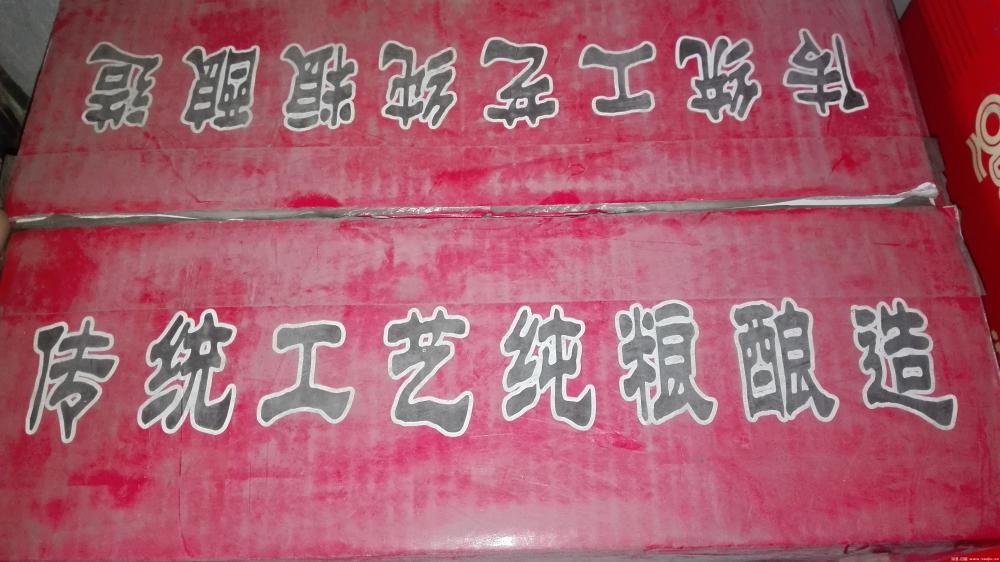 传统工艺纯粮酿造
传统工艺纯粮酿造